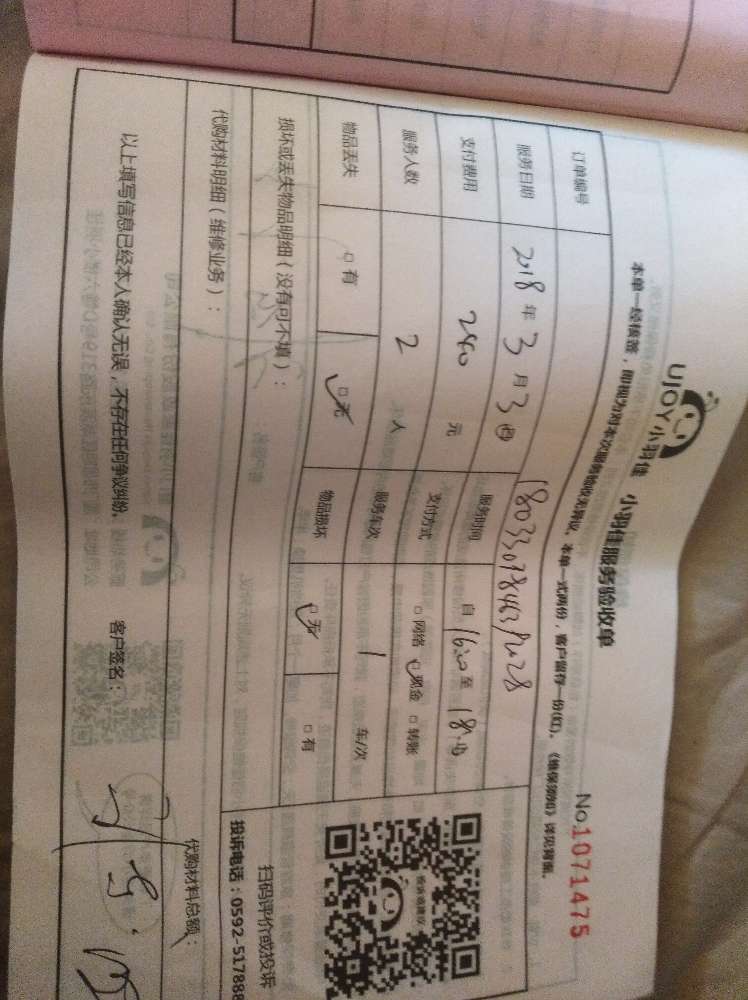 UJOY小羽佳 小羽佳服务验收单
No.1071475
本单一经核签，即视为对本次服务验收无异议。本单一式两份，客户留存一份(红)。《维保须知》详见背面。
订单编号
服务日期 2018年3月3日 服务时间 自16:00至18:00
支付费用 240元 支付方式 □网络 □现金 □转账
服务人数 2人 服务车次 1 车/次
物品丢失 □有 □无 物品损坏 □无 □有
损坏或丢失物品明细（没有可不填）：
扫码评价或投诉
投诉电话：0592-517888
投诉或建议
代购材料明细（维修业务）：
代购材料总额：
以上填写信息已经本人确认无误，不存在任何争议纠纷。 客户签名：